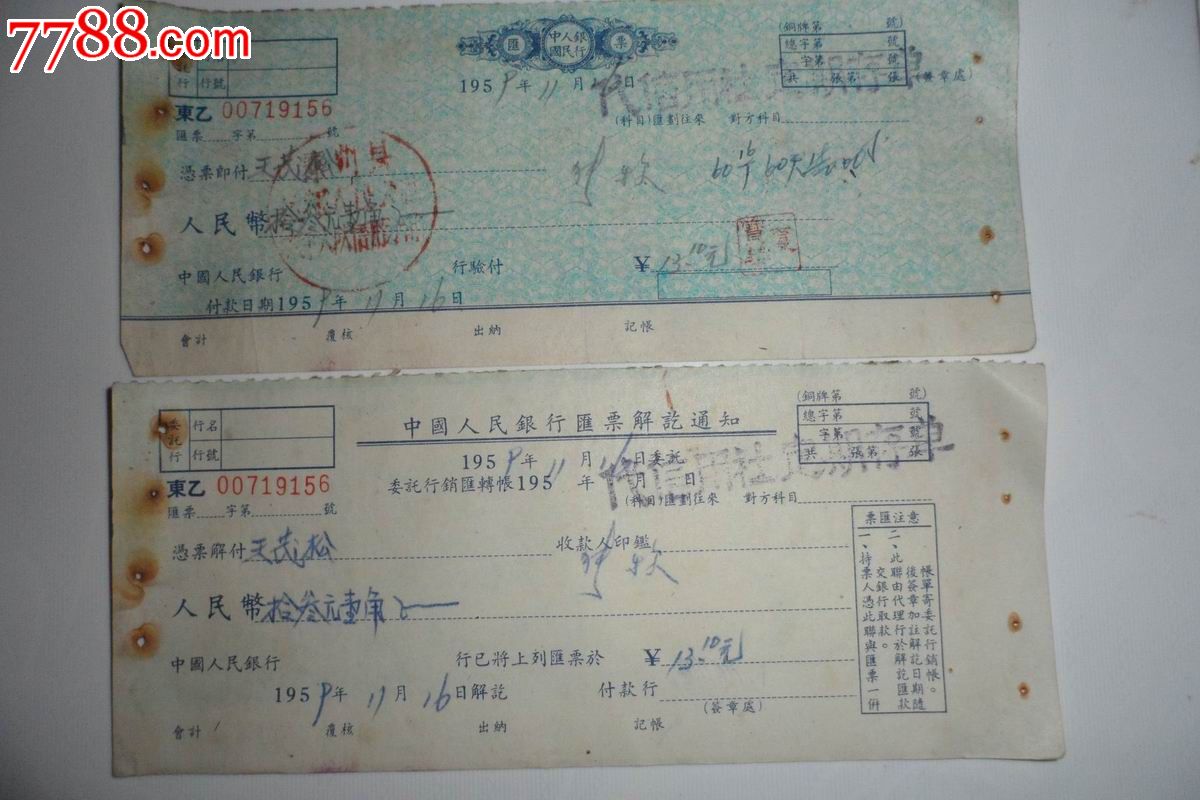 7788.com
匯 中國人民銀行 票
(銅牌第 號)
總字第 號
字第 號
共 張第 張
(簽章處)
託行 行號
1959年11月16日
代信用社定期存單
東乙 00719156
匯票 字第 號
(科目)匯劃往來 對方科目
憑票即付 王茂松
人民幣 拾叁元壹角
中國人民銀行 行驗付 ¥ 13.10元
付款日期1959年11月16日
會計 覆核 出納 記帳
委託行 行名
行號
中國人民銀行匯票解訖通知
(銅牌第 號)
總字第 號
字第 號
共 張第 張
1959年11月16日委託
代信用社定期存單
東乙 00719156
委託行銷匯轉帳195 年 月 日
匯票 字第 號
(科目)匯劃往來 對方科目
憑票解付 王茂松 收款人印鑑
人民幣 拾叁元壹角
中國人民銀行 行已將上列匯票於 ¥ 13.10元
1959年11月16日解訖 付款行
(簽章處)
會計 覆核 出納 記帳
票匯注意
一、持票人憑此聯與匯票一併
交銀行取款。
二、此聯由代理行於解訖匯款
後簽章加註解訖日期隨
帳單寄委託行銷帳。